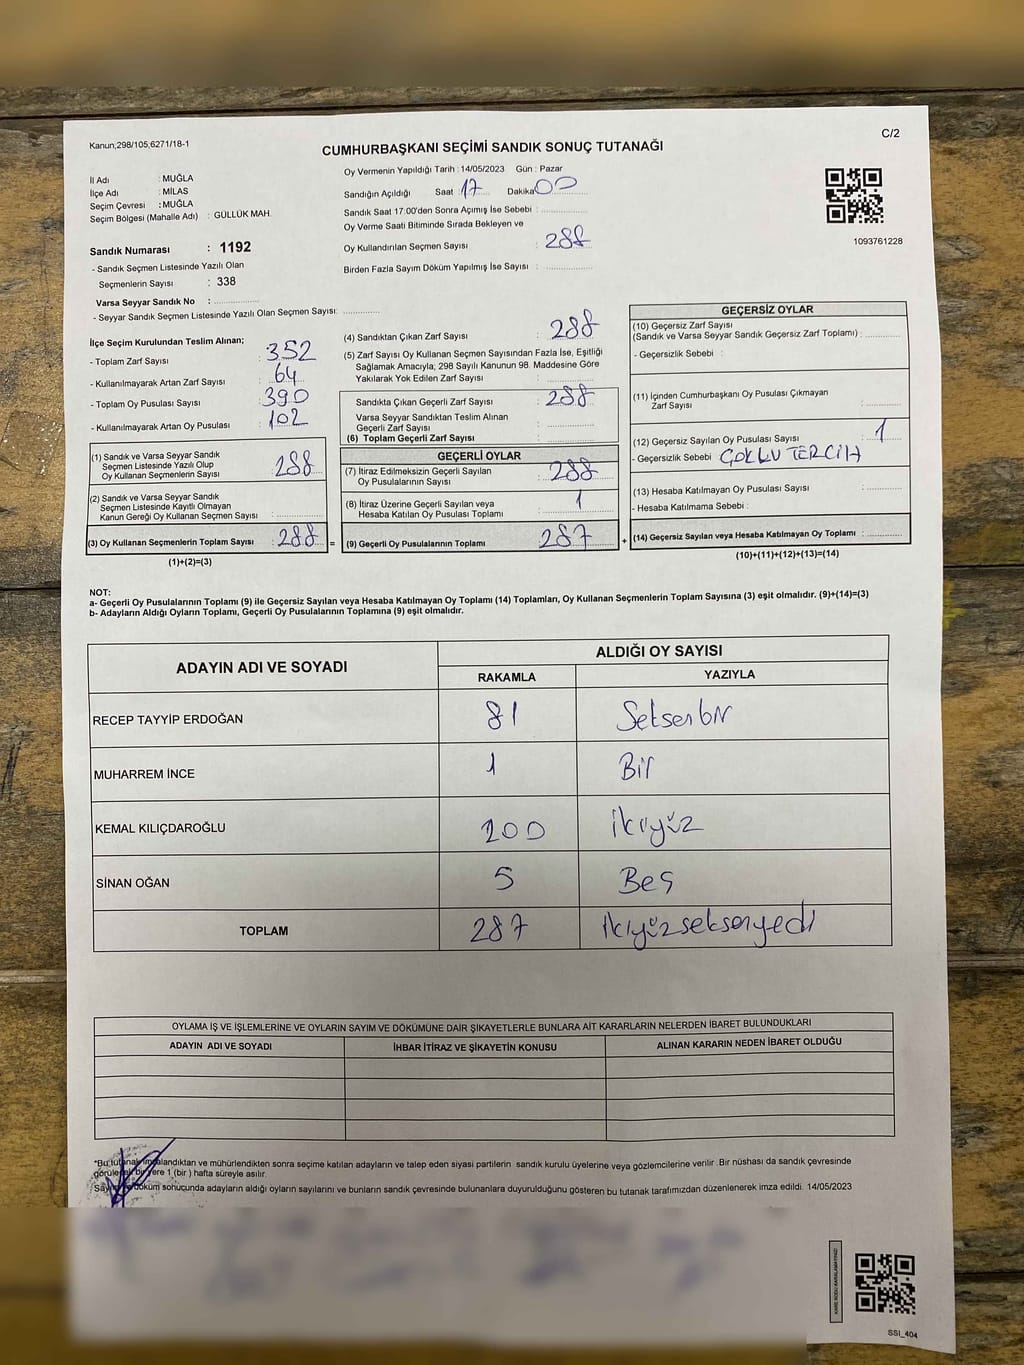 Kanun,298/105,6271/18-1
C/2
CUMHURBAŞKANI SEÇİMİ SANDIK SONUÇ TUTANAĞI
İl Adı : MUĞLA
İlçe Adı : MİLAS
Seçim Çevresi : MUĞLA
Seçim Bölgesi (Mahalle Adı) : GÜLLÜK MAH.
Sandık Numarası : 1192
- Sandık Seçmen Listesinde Yazılı Olan
Seçmenlerin Sayısı : 338
Varsa Seyyar Sandık No :
- Seyyar Sandık Seçmen Listesinde Yazılı Olan Seçmen Sayısı:
Oy Vermenin Yapıldığı Tarih : 14/05/2023 Gün : Pazar
Sandığın Açıldığı Saat : 17 Dakika 00
Sandık Saat 17:00'den Sonra Açımış İse Sebebi :
Oy Verme Saati Bitiminde Sırada Bekleyen ve
Oy Kullandırılan Seçmen Sayısı : 288
Birden Fazla Sayım Döküm Yapılmış İse Sayısı :
1093761228
İlçe Seçim Kurulundan Teslim Alınan;
- Toplam Zarf Sayısı : 352
- Kullanılmayarak Artan Zarf Sayısı : 64
- Toplam Oy Pusulası Sayısı : 390
- Kullanılmayarak Artan Oy Pusulası : 102
(1) Sandık ve Varsa Seyyar Sandık
Seçmen Listesinde Yazılı Olup
Oy Kullanan Seçmenlerin Sayısı : 288
(2) Sandık ve Varsa Seyyar Sandık
Seçmen Listesinde Kayıtlı Olmayan
Kanun Gereği Oy Kullanan Seçmen Sayısı :
(3) Oy Kullanan Seçmenlerin Toplam Sayısı : 288
(1)+(2)=(3)
(4) Sandıktan Çıkan Zarf Sayısı : 288
(5) Zarf Sayısı Oy Kullanan Seçmen Sayısından Fazla İse, Eşitliği
Sağlamak Amacıyla; 298 Sayılı Kanunun 98. Maddesine Göre
Yakılarak Yok Edilen Zarf Sayısı :
Sandıkta Çıkan Geçerli Zarf Sayısı : 288
Varsa Seyyar Sandıktan Teslim Alınan
Geçerli Zarf Sayısı :
(6) Toplam Geçerli Zarf Sayısı :
=
GEÇERLİ OYLAR
(7) İtiraz Edilmeksizin Geçerli Sayılan
Oy Pusulalarının Sayısı : 288
(8) İtiraz Üzerine Geçerli Sayılan veya
Hesaba Katılan Oy Pusulası Toplamı : 1
(9) Geçerli Oy Pusulalarının Toplamı : 287
+
GEÇERSİZ OYLAR
(10) Geçersiz Zarf Sayısı
(Sandık ve Varsa Seyyar Sandık Geçersiz Zarf Toplamı) :
- Geçersizlik Sebebi :
(11) İçinden Cumhurbaşkanı Oy Pusulası Çıkmayan
Zarf Sayısı :
(12) Geçersiz Sayılan Oy Pusulası Sayısı : 1
- Geçersizlik Sebebi ÇOKLU TERCİH
(13) Hesaba Katılmayan Oy Pusulası Sayısı :
- Hesaba Katılmama Sebebi :
(14) Geçersiz Sayılan veya Hesaba Katılmayan Oy Toplamı :
(10)+(11)+(12)+(13)=(14)
NOT:
a- Geçerli Oy Pusulalarının Toplamı (9) ile Geçersiz Sayılan veya Hesaba Katılmayan Oy Toplamı (14) Toplamları, Oy Kullanan Seçmenlerin Toplam Sayısına (3) eşit olmalıdır. (9)+(14)=(3)
b- Adayların Aldığı Oyların Toplamı, Geçerli Oy Pusulalarının Toplamına (9) eşit olmalıdır.
ADAYIN ADI VE SOYADI ALDIĞI OY SAYISI
RAKAMLA YAZIYLA
RECEP TAYYİP ERDOĞAN 81 Seksenbir
MUHARREM İNCE 1 Bir
KEMAL KILIÇDAROĞLU 200 İkiyüz
SİNAN OĞAN 5 Beş
TOPLAM 287 ikiyüzseksenyedi
OYLAMA İŞ VE İŞLEMLERİNE VE OYLARIN SAYIM VE DÖKÜMÜNE DAİR ŞİKAYETLERLE BUNLARA AİT KARARLARIN NELERDEN İBARET BULUNDUKLARI
ADAYIN ADI VE SOYADI İHBAR İTİRAZ VE ŞİKAYETİN KONUSU ALINAN KARARIN NEDEN İBARET OLDUĞU
*Bu tutanak imzalandıktan ve mühürlendikten sonra seçime katılan adayların ve talep eden siyasi partilerin sandık kurulu üyelerine veya gözlemcilerine verilir. Bir nüshası da sandık çevresinde
bir yere 1 (bir) hafta süreyle asılır.
döküm sonucunda adayların aldığı oyların sayılarını ve bunların sandık çevresinde bulunanlara duyurulduğunu gösteren bu tutanak tarafımızdan düzenlenerek imza edildi. 14/05/2023
KARE KODU KARALAMAYINIZ!
SSI_404